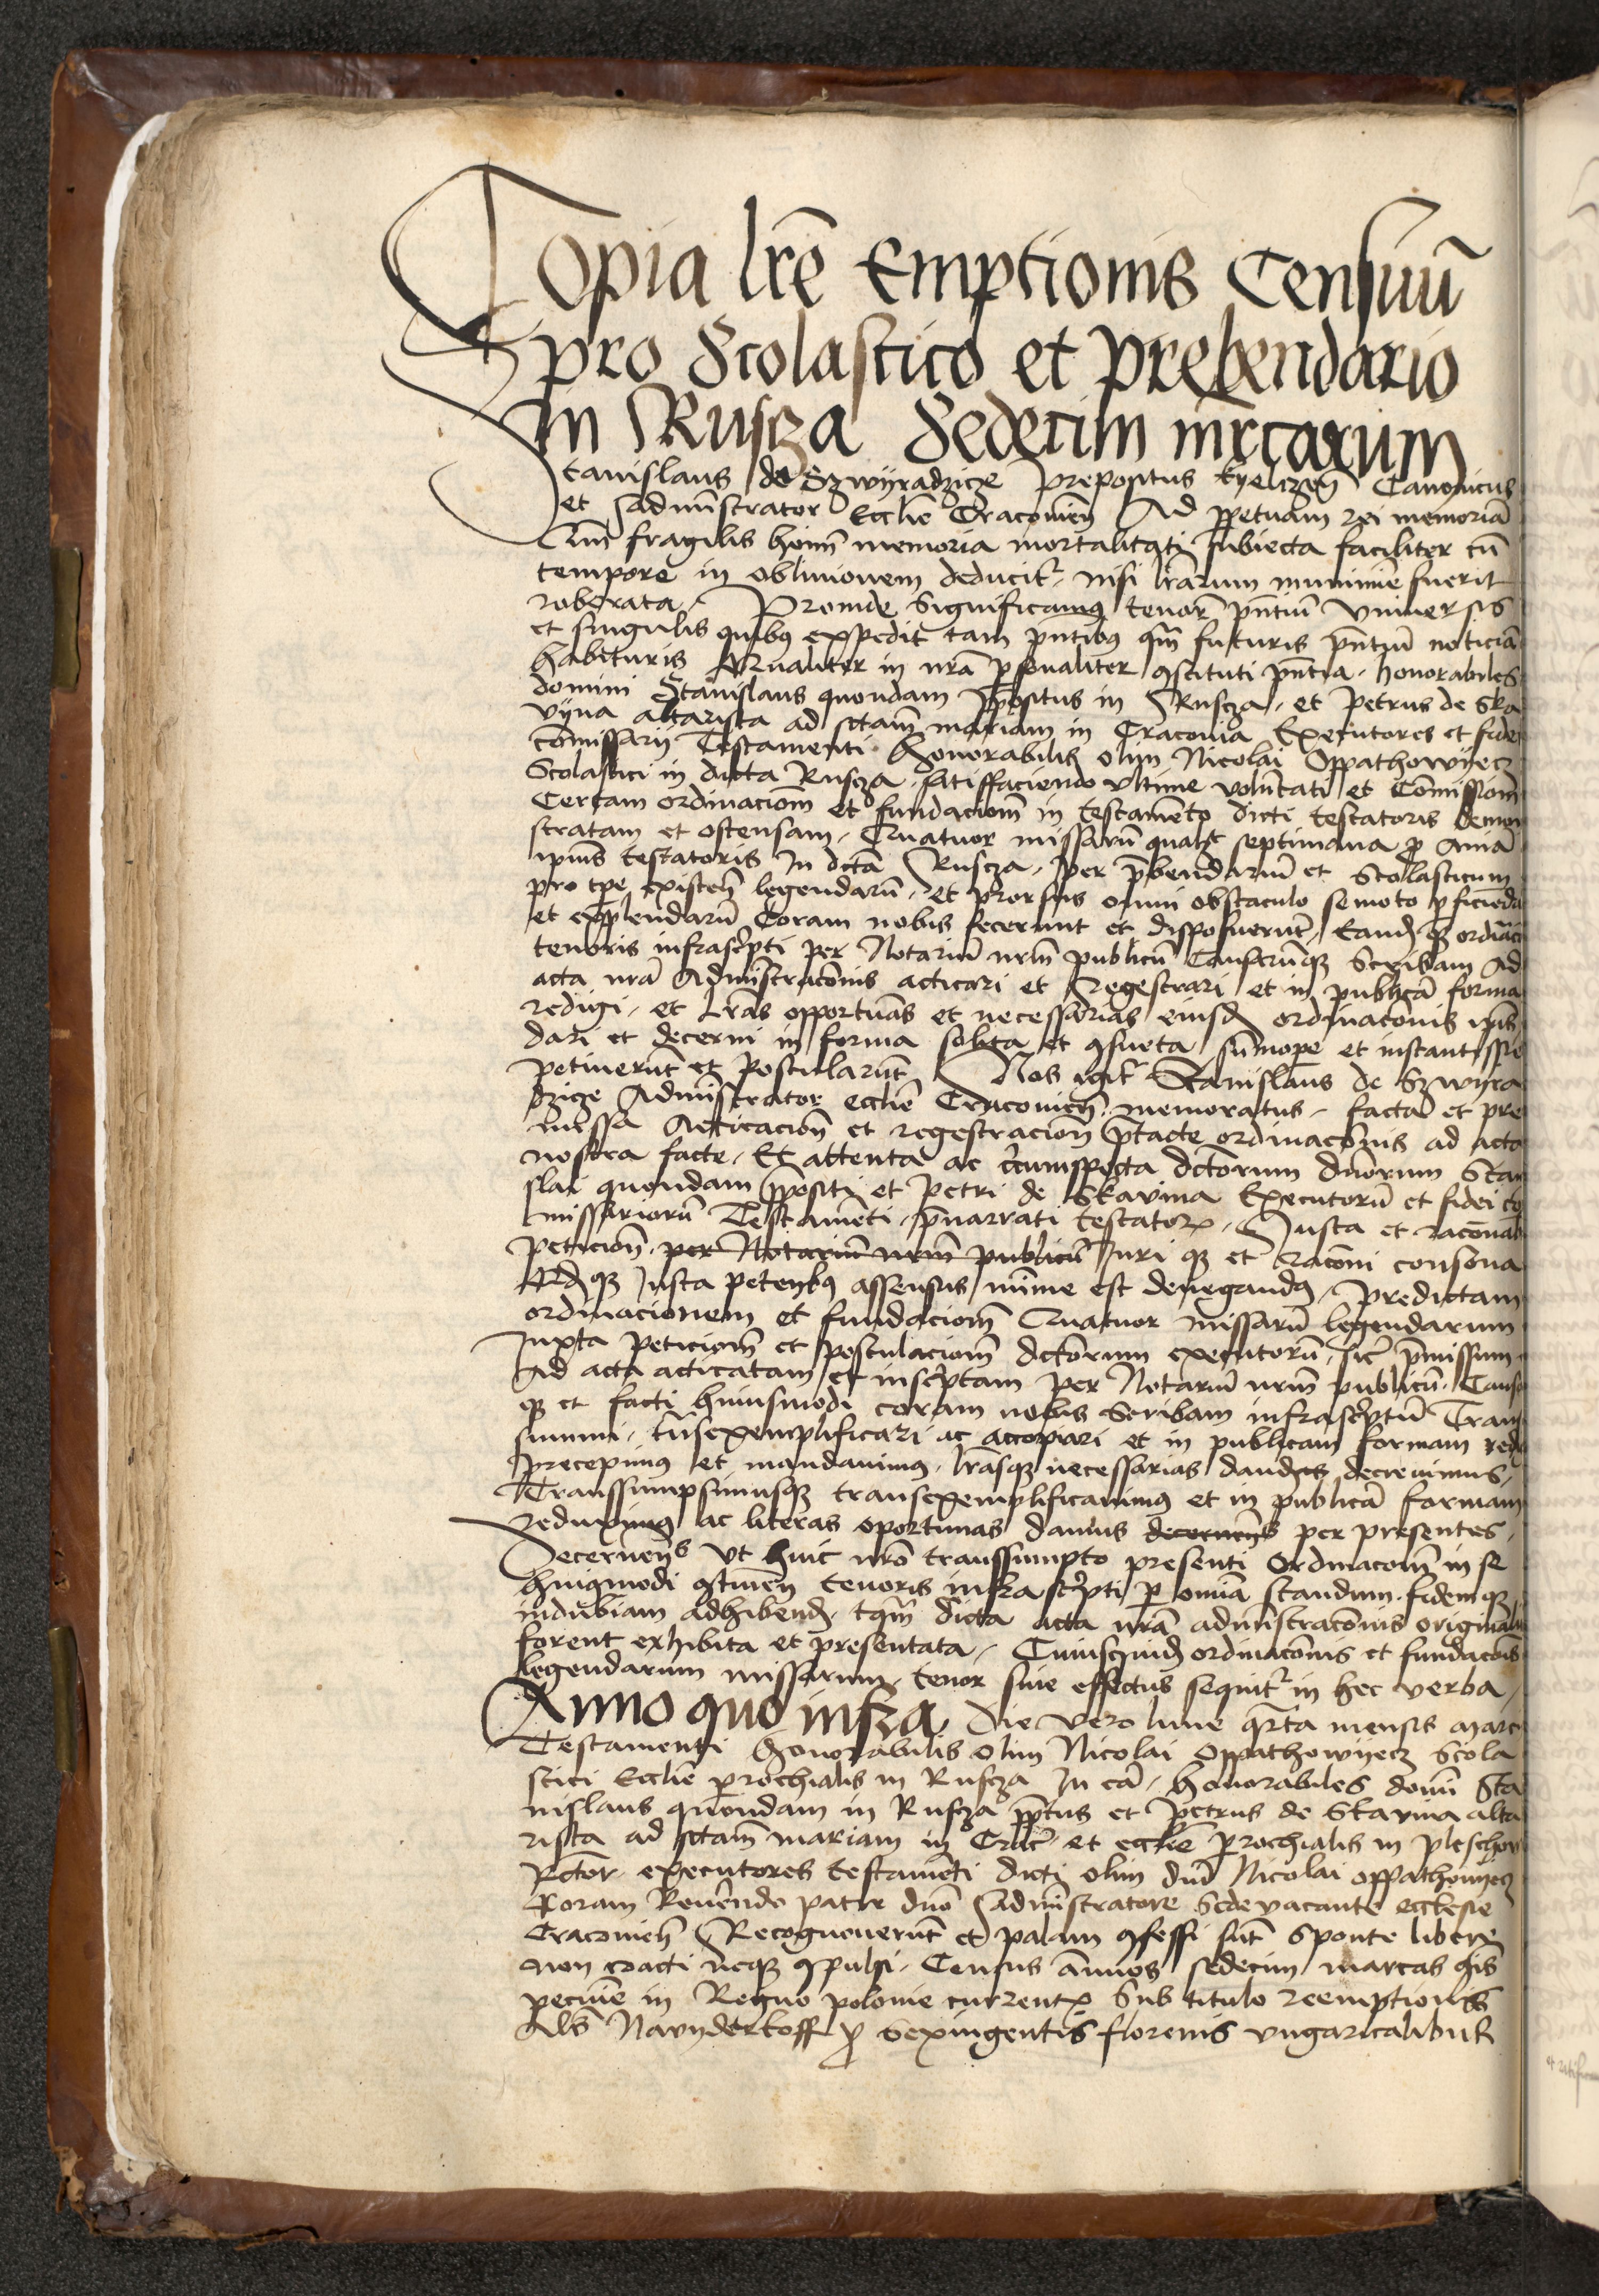 Copia lrē Emptionis Censuū
pro Scolastico et prebendario
in Ruscza Sedecim mrcarum
Stanislaus de Szwyradzicze prepositus kyelczen̄ Canonicus
et Administrator Ecclīe Cracovien̄ Ad ꝑpetuam rei memoriā
Cum fragilis hoīm memoria mortalitati subiecta faciliter cū
tempore in oblivionem deducit᷑, nisi lrarum munimīe fuerit
roborata. Proinde Significamꝰ tenorē pn̄tiū Universis
et singulis quibꝰ expedit tam pn̄tibꝰ qm̄ futuris pn̄tiū noticiā
habituris Qualiter in nrā ꝑsonaliter ꝯstituti pn̄cia, honorabiles
domini Stanislaus quondam p̄positus in Ruscza, et petrus de Ska
vyna altarista ad sctam mariam in Cracovia Executores et fidei
comissarij Testamenti honorabilis olim Nicolai Oppathowyecz
Scolastici in dicta Ruscza, satisfaciendo ultime volūntati et Cōmissioni
Certam ordinacionē et fundacionē in testamēto dicti testatoris demon
stratam et ostensam, Quatuor missarū qualꝫ septimana ꝓ aīa
ipīus testatoris In dctā Rusczā, per p̄bendariū et Scolasticum
pro tpe existeñ legendarū, et prorsus omni obstaculo semoto ꝑficienda
et explendarū Coram nobis fecerunt et disposuerūt, Eandꝫ qꝫ ordiāci
tenoris infrascͥpti per Notariū nrm̄ publicū Causarūqꝫ Scribam Ad
acta nrā Admīstracōnis acticari et Regestrari et in publicā formā
redigi, et lrās opportūas et necessarias eiusdꝫ ordinacōnis ipīs
dari et decerni in forma solita et ꝯsueta sūmope et instantissīe
petiverūt et postularūt Nos igit᷑ Stanislaus de Szwyra
dzicze Administrator ecclīe Cracovieñ memoratus, facta et pre
missa Acticacioñ et regestracioñ p̄tacte ordinacōnis ad acta
nostra facte, Et attenta ac cͥcumspecta dctorum dnōrum Stani
slai quondam p̄positi et petri de Skavina Executorū et fidei co
missariorū Testamēti, p̄narrati testatorꝭ, Iusta et racōnab
peticioñ, per Notariū nrm̄ publicū Iuri qꝫ et racōni consona
Qꝫ qꝫ iusta petentibꝰ assensus mīime est denegandꝰ, predictam
ordinacionem et fundacionē Quatuor missarū legendarum
Iuxta peticionē et postulacionē dctorum executorū, sic̄ p̄missum
Ad acta acticatam et inscͥptam per Notariū nrm̄ publicū, Causa
qꝫ et facti huiusmodi coram nobis Scribam infrascͥptū Trans
summi, trāsexemplificari ac accopiari et in publicam formam redi
precepimꝰ et mandavimꝰ, lrāsqꝫ necessarias dandas decrevimus,
Transsumpsimusqꝫ transexemplificavimꝰ et in publicā formam
reduximꝰ ac literas oportunas damus decernen̄s per presentes,
Decernen̄s Ut huic nrō transsumpto presenti Ordinacōnī in se
huiꝰmodi ꝯtineñ tenoris infra scͥpti ꝑ omīa standum, fidemqꝫ
indubiam adhibendꝫ, tqm̄ dicta acta nrā administracōnis origināl
forent exhibita et presentata, Cuiusquidꝫ ordinacōnis et fundacōis
legendarum missarum, tenor sive effectus sequit᷑ in hec verba,
Anno quo infra, die vero lune qrta mensis marcii
Testamenti honorabilis olim Nicolai Oppathowyecz Scola
stici Ecclīe ꝑrochialis in Rusczā In cā, honorabiles domī Sta
nislaus quondam in Rusczā ppt̄us et petrus de Skavina alta
rista ad sctam mariam in Crac̄ et ecclīe ꝑrochialis in pleschov
Rctōr, executores testamēti dicti olim dnī Nicolai oppathowyecz
Coram Revēndo patre dnō Administratore Sedevacante ecclesie
Cracovieñ Recognoverūt et palam ꝯfessi sūt Sponte libere
non coacti neqꝫ ꝯpulsi, Census ānuos sedecim marcas gis
pecunīe in Regno polonie currentꝭ Sub titulo reemptionis
Als Navyderkoff ꝓ sexingentis florenis ungaricalibus